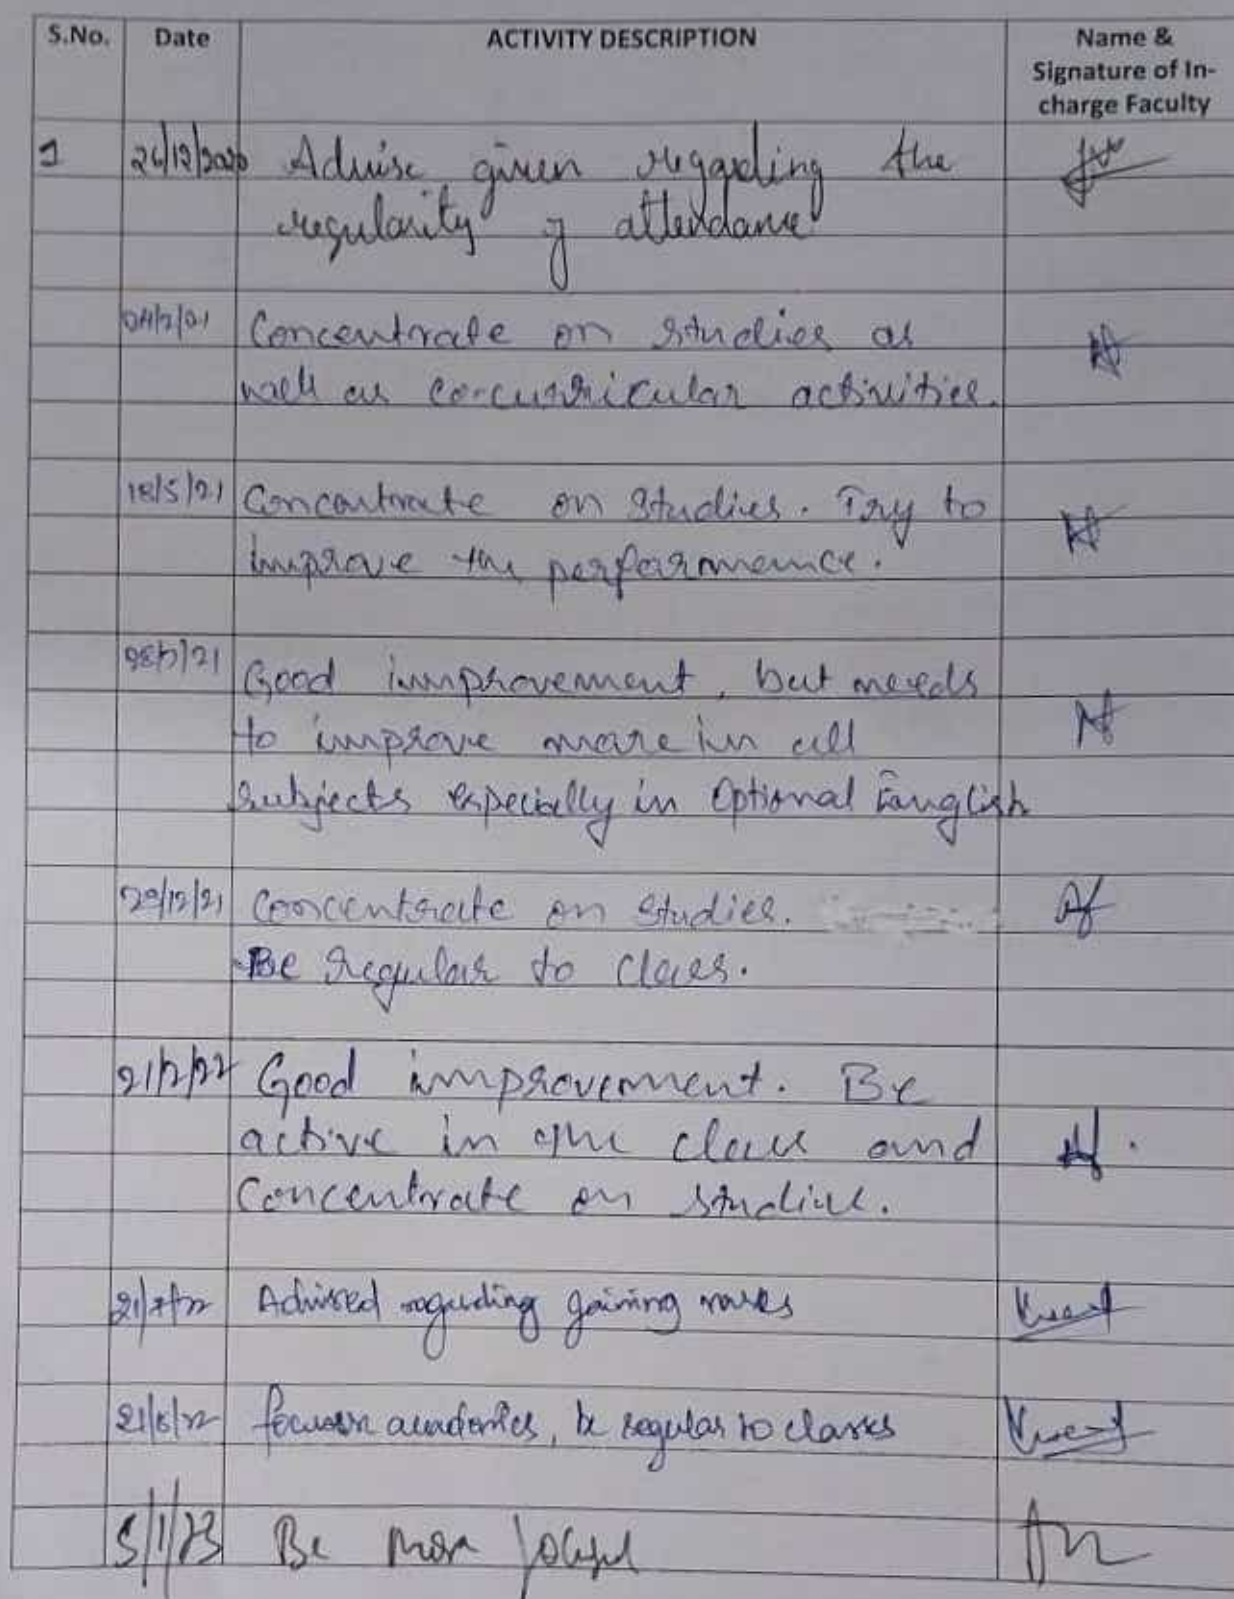 S.No. Date ACTIVITY DESCRIPTION Name &
Signature of In-
charge Faculty
1 26/12/2020 Advise given regarding the
regularity of attendance
04/2/21 Concentrate on studies as
well as co-curricular activities.
18/5/21 Concentrate on studies. Try to
improve the performance.
28/7/21 Good improvement, but needs
to improve more in all
subjects especially in Optional English
29/12/21 Concentrate on studies.
Be regular to class.
21/2/22 Good improvement. Be
active in the class and
Concentrate on studies.
21/7/22 Advised regarding gaining marks
21/8/22 focus on academics, be regular to classes
5/1/23 Be more